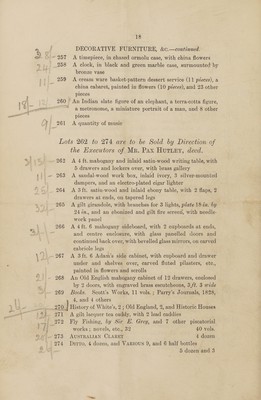 18
DECORATIVE FURNITURE, &c.—continued.
257 A timepiece, in shaped ormolu case, with china flowers
258 A clock, in black and green marble case, surmounted by
bronze vase
259 A cream ware basket-pattern dessert service (11 pieces), a
china cabaret, painted in flowers (10 pieces), and 23 other
pieces
260 An Indian slate figure of an elephant, a terra-cotta figure,
a metronome, a miniature portrait of a man, and 8 other
pieces
261 A quantity of music
Lots 262 to 274 are to be Sold by Direction of
the Executors of MR. PAX HUTLEY, decd.
262 A 4 ft. mahogany and inlaid satin-wood writing table, with
5 drawers and lockers over, with brass gallery
263 A sandal-wood work box, inlaid ivory, 3 silver-mounted
dampers, and an electro-plated cigar lighter
264 A 3 ft. satin-wood and inlaid ebony table, with 2 flaps, 2
drawers at ends, on tapered legs
265 A gilt girandole, with branches for 3 lights, plate 18 in. by
24 in., and an ebonized and gilt fire screen, with needle-
work panel
266 A 4 ft. 6 mahogany sideboard, with 2 cupboards at ends,
and centre enclosure, with glass panelled doors and
continued back over, with bevelled glass mirrors, on carved
cabriole legs
267 A 3 ft. 6 Adam's side cabinet, with cupboard and drawer
under and shelves over, carved fluted pilasters, etc.,
painted in flowers and scrolls
268 An Old English mahogany cabinet of 12 drawers, enclosed
by 2 doors, with engraved brass escutcheons, 3 ft. 3 wide
269 Books. Scott's Works, 11 vols.; Parry's Journals, 1828,
4, and 4 others
270 History of White's, 2; Old England, 2, and Historic Houses
271 A gilt lacquer tea caddy, with 2 lead caddies
272 Fly Fishing, by Sir E. Grey, and 7 other pictorial
works; novels, etc., 32 40 vols.
273 AUSTRALIAN CLARET 4 dozen
274 DITTO, 4 dozen, and VARIOUS 9, and 6 half bottles
5 dozen and 3